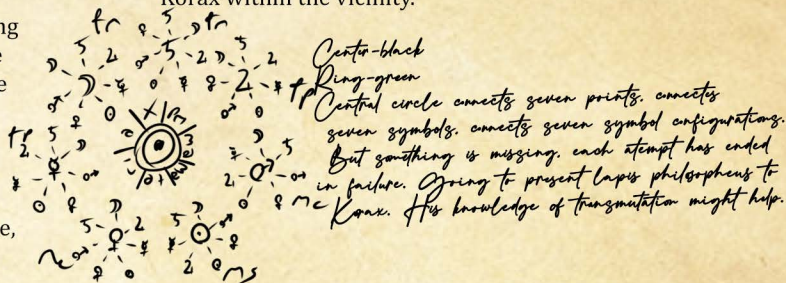 Korax within the vicinity.
ng
e
e
e,
Center-black
Ring-green
Central circle connects seven points. connects
seven symbols. connects seven symbol configurations.
But something is missing. each atempt has ended
in failure. Going to present lapis philosopheus to
Korax. His knowledge of transmutation might help.
tr
tr
tp
tp
mc
ms